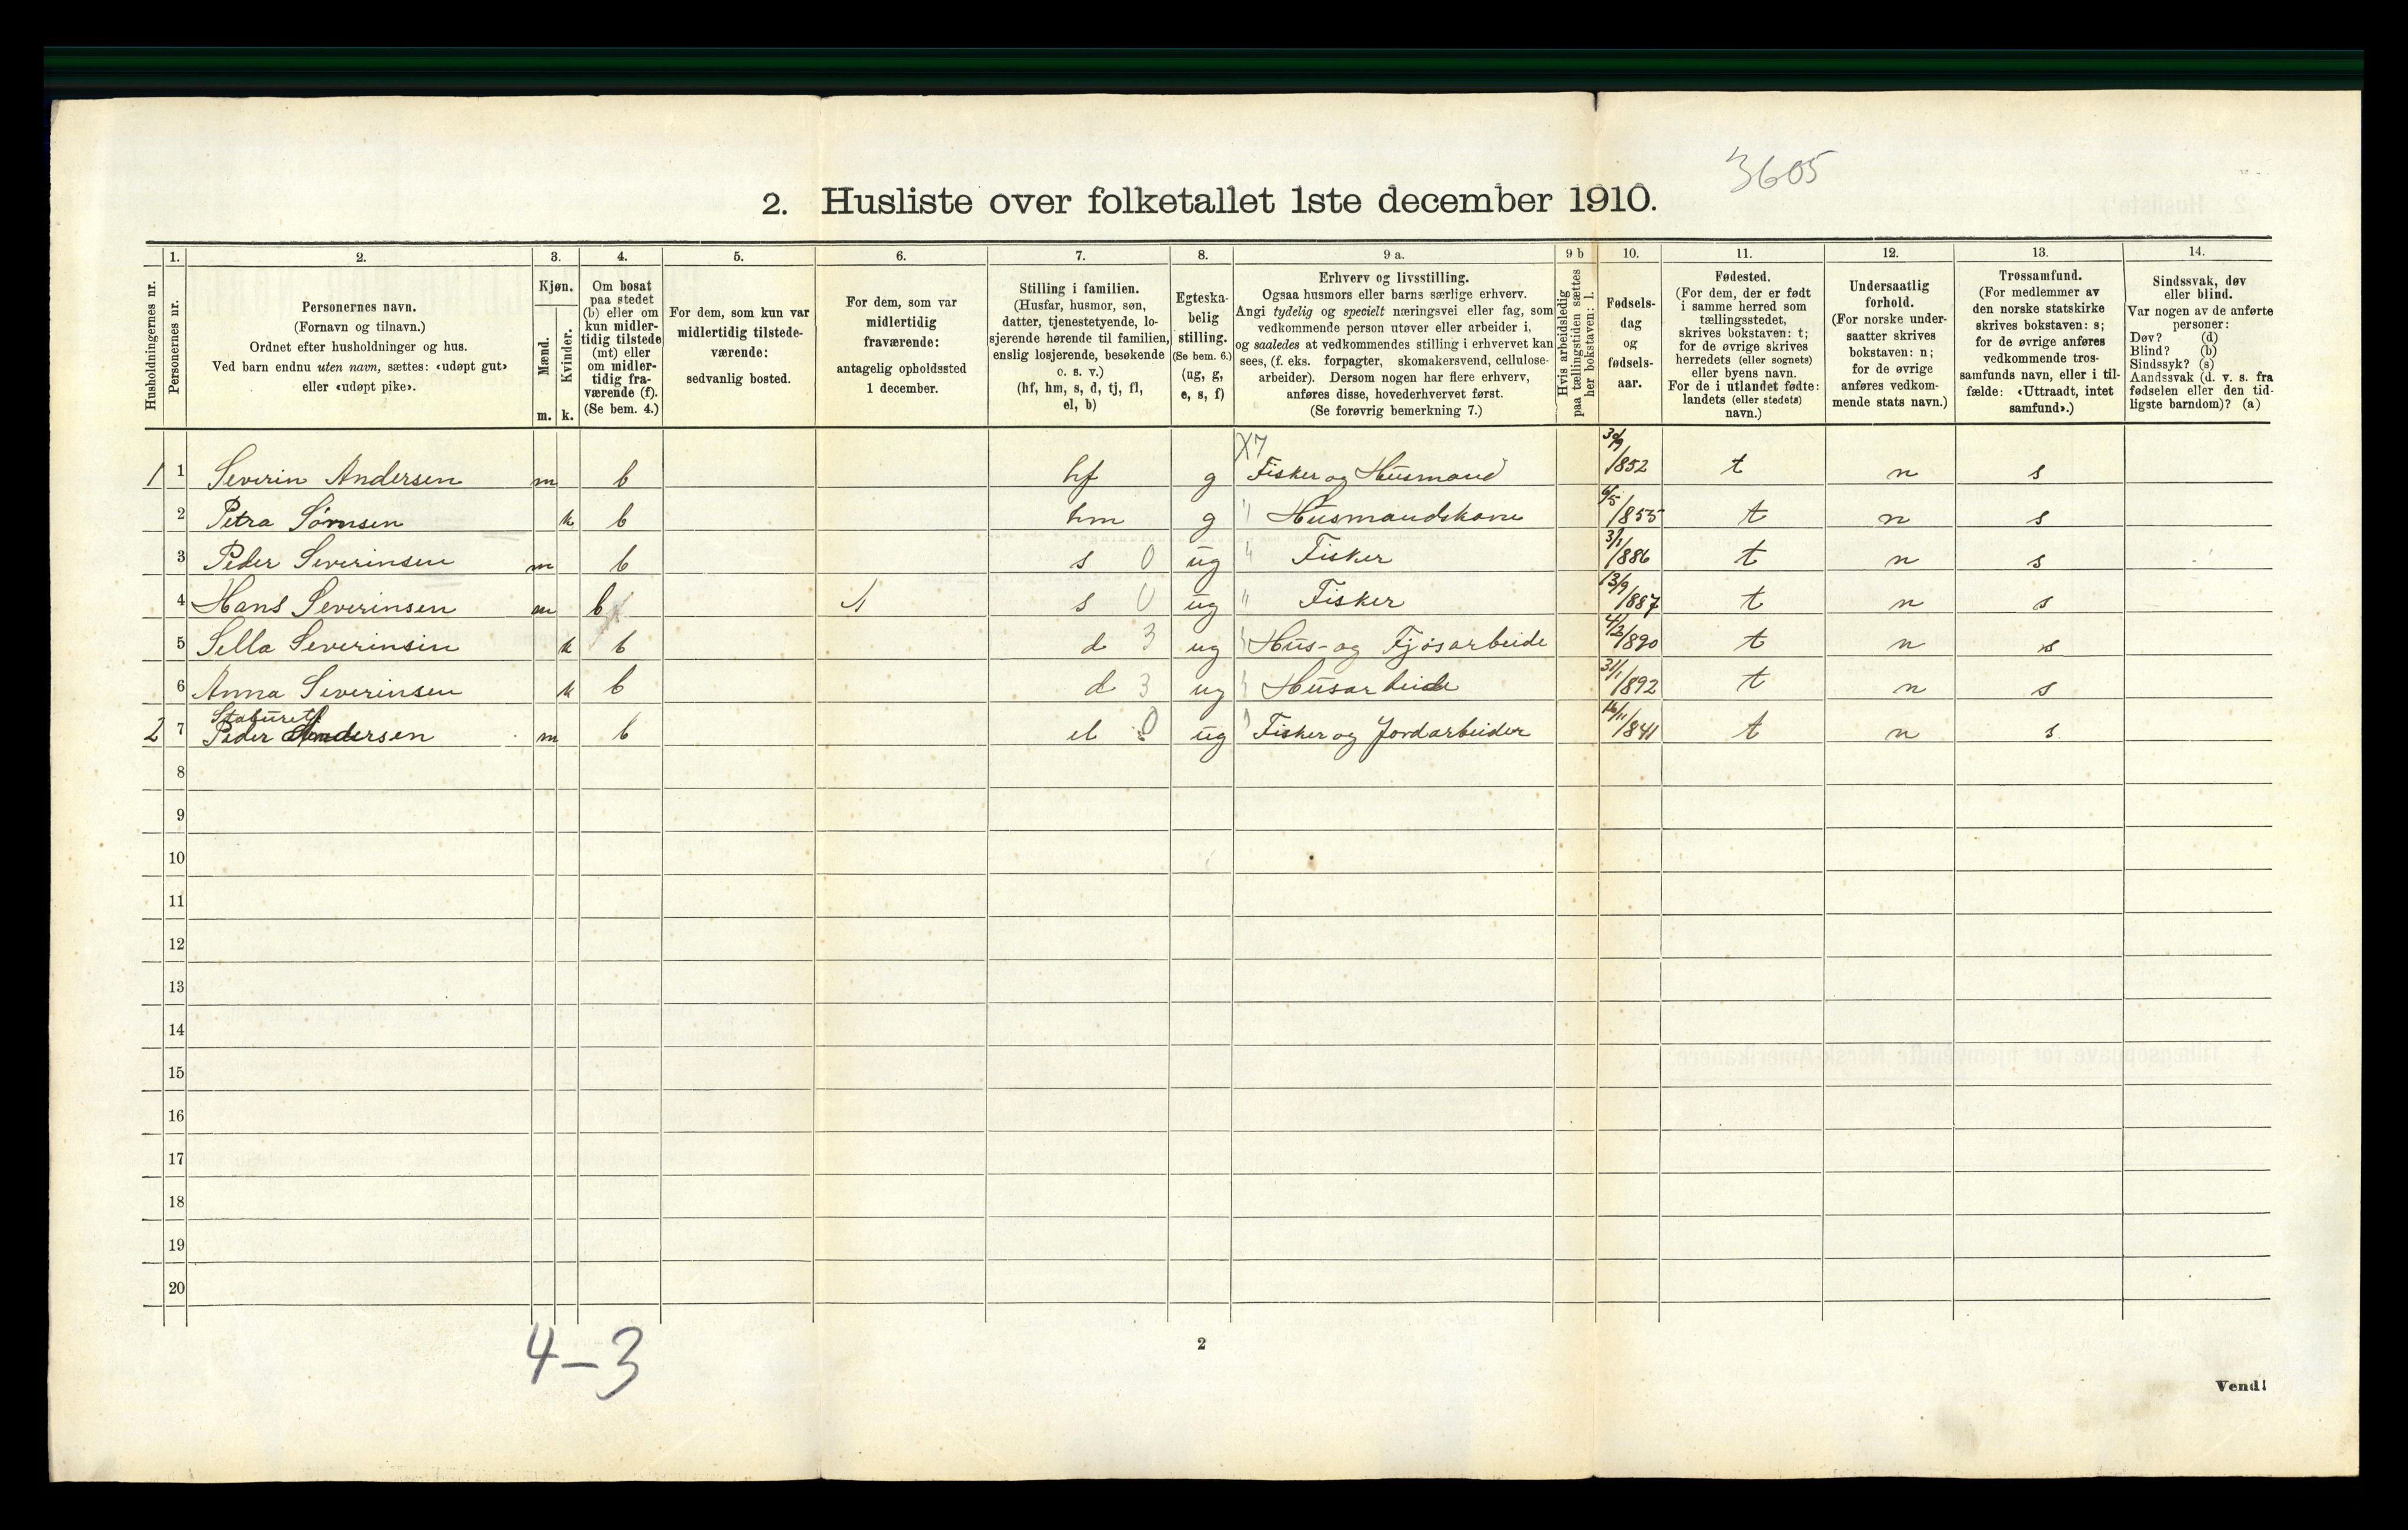 3605
2. Husliste over folketallet 1ste december 1910.
1. 2. 3. 4. 5. 6. 7. 8. 9 a. 9 b 10. 11. 12. 13. 14.
Husholdningernes nr.
Personernes nr.
Personernes navn.
(Fornavn og tilnavn.)
Ordnet efter husholdninger og hus.
Ved barn endnu uten navn, sættes: «udøpt gut»
eller «udøpt pike».
Kjøn.
Mænd.
Kvinder.
m. k.
Om bosat
paa stedet
(b) eller om
kun midler-
tidig tilstede
(mt) eller
om midler-
tidig fra-
værende (f).
(Se bem. 4.)
For dem, som kun var
midlertidig tilstede-
værende:
sedvanlig bosted.
For dem, som var
midlertidig
fraværende:
antagelig opholdssted
1 december.
Stilling i familien.
(Husfar, husmor, søn,
datter, tjenestetyende, lo-
sjerende hørende til familien,
enslig losjerende, besøkende
o. s. v.)
(hf, hm, s, d, tj, fl,
el, b)
Egteska-
belig
stilling.
(Se bem. 6.)
(ug, g,
e, s, f)
Erhverv og livsstilling.
Ogsaa husmors eller barns særlige erhverv.
Angi tydelig og specielt næringsvei eller fag, som
vedkommende person utøver eller arbeider i,
og saaledes at vedkommendes stilling i erhvervet kan
sees, (f. eks. forpagter, skomakersvend, cellulose-
arbeider). Dersom nogen har flere erhverv,
anføres disse, hovederhvervet først.
(Se forøvrig bemerkning 7.)
Hvis arbeidsledig
paa tællingstiden sættes
her bokstaven: l.
Fødsels-
dag
og
fødsels-
aar.
Fødested.
(For dem, der er født
i samme herred som
tællingsstedet,
skrives bokstaven: t;
for de øvrige skrives
herredets (eller sognets)
eller byens navn.
For de i utlandet fødte:
landets (eller stedets)
navn.)
Undersaatlig
forhold.
(For norske under-
saatter skrives
bokstaven: n;
for de øvrige
anføres vedkom-
mende stats navn.)
Trossamfund.
(For medlemmer av
den norske statskirke
skrives bokstaven: s;
for de øvrige anføres
vedkommende tros-
samfunds navn, eller i til-
fælde: «Uttraadt, intet
samfund».)
Sindssvak, døv
eller blind.
Var nogen av de anførte
personer:
Døv? (d)
Blind? (b)
Sindssyk? (s)
Aandssvak (d. v. s. fra
fødselen eller den tid-
ligste barndom)? (a)
X7
1 1 Severin Andersen m b hf g Fisker og Husmand 30/9 1852 t n s
2 Petra Sørnsen k b hm g " Husmandskone 6/5 1855 t n s
3 Peder Severinsen m b s 0 ug " Fisker 3/1 1886 t n s
4 Hans Severinsen m b s 0 ug " Fisker 13/9 1887 t n s
5 Sella Severinsin k b d 3 ug " Hus- og Fjøsarbeide 4/3 1890 t n s
6 Anna Severinsen k b d 3 ug " Husarbeide 31/1 1892 t n s
Staburet
2 7 Peder Andersen m b el 0 ug " Fisker og Jordarbeider 16/11 1841 t n s
8
9
10
11
12
13
14
15
16
17
18
19
20
4-3
2
Vend!